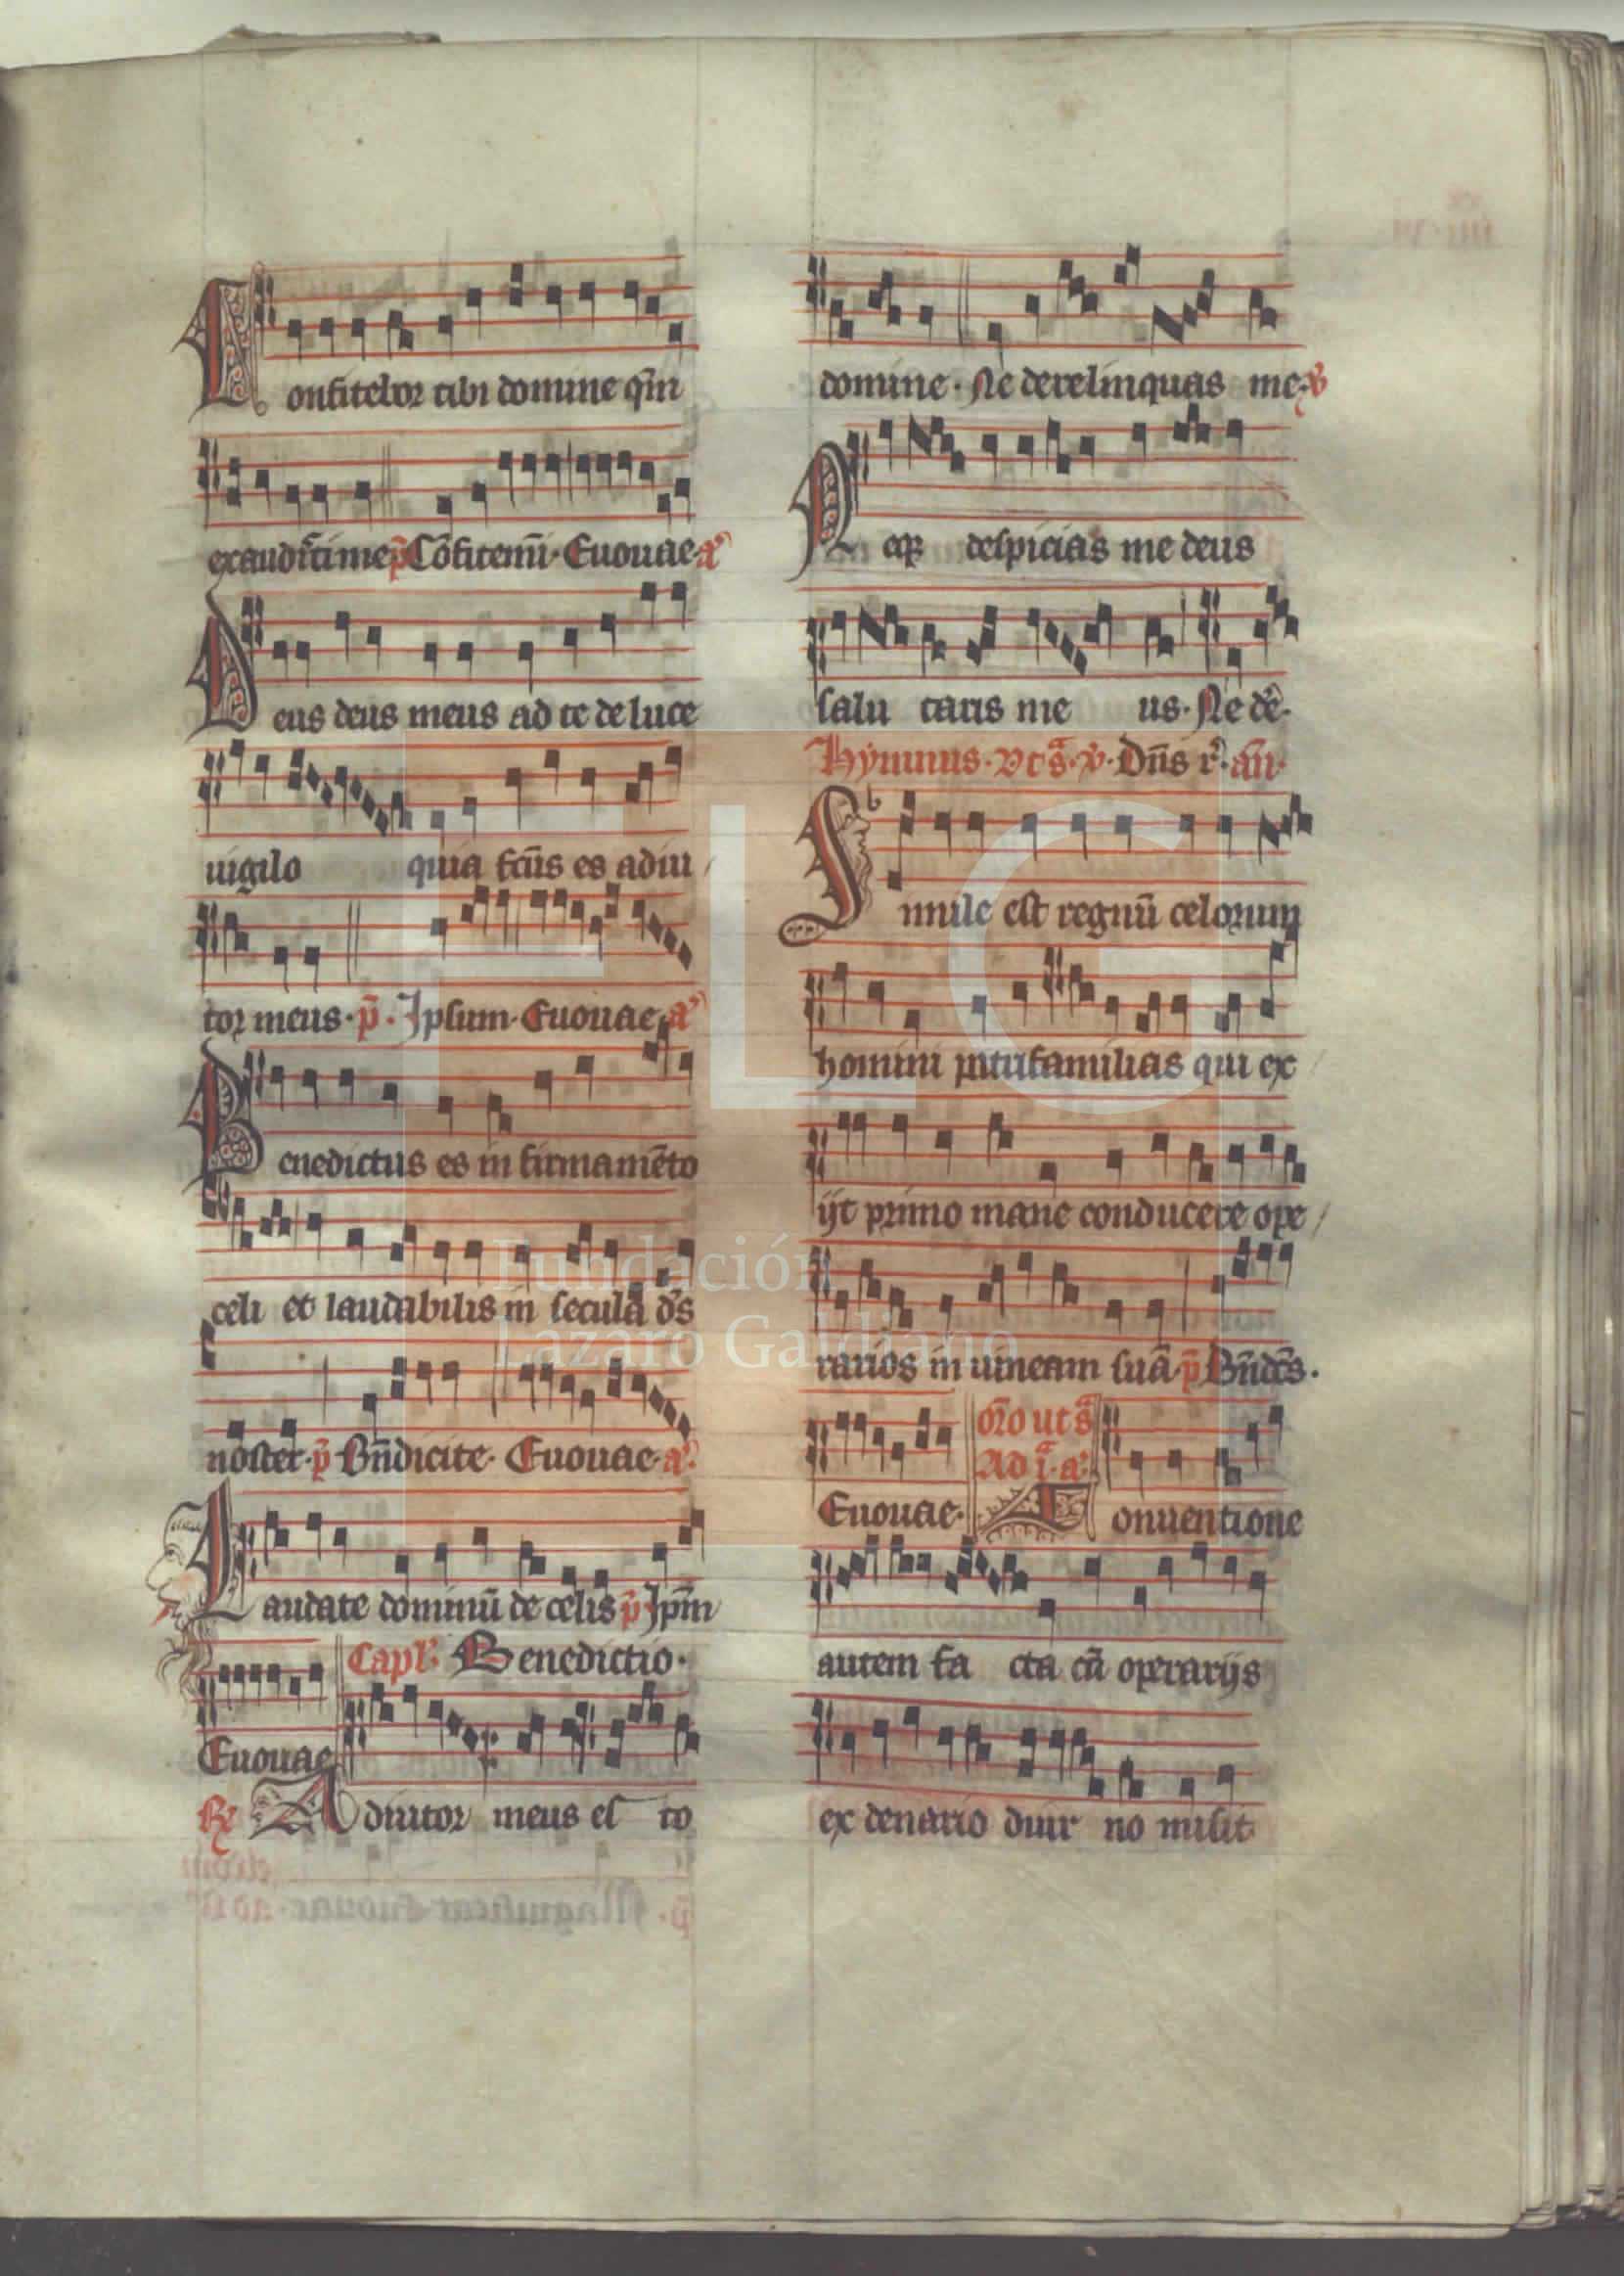 Confitebor tibi domine qm̄
exaudisti me p̄ Cōfitemī. Euouae. a
Deus deus meus ad te de luce
uigilo quia fcūs es adiu
tor meus. p̄. Ipsum. Euouae. a
Benedictus es in firmamēto
celi et laudabilis in secula ds̄
noster. p̄ Bn̄dicite. Euouae. a
Laudate dominū de celis p̄ Ipm̄
Capl̄. Benedictio.
Euouae
℟ Adiutor meus es to
domine. Ne derelinquas me. ℣
Neqꝫ despicias me deus
salu taris me us. Ne de.
Hymnus. vt sᵃ. ℣. Dn̄s r. an̄.
Simile est regnū celorum
homini pr̄ifamilias qui ex
ijt primo mane conducere ope
rarios in uineam suā. p̄ Bn̄dcs̄.
oro ut sᵃ
Ad jᵃ. a.
Euouae. Conuentione
autem fa cta cū operarijs
ex denario diur no misit
FLG
Fundación
Lázaro Galdiano